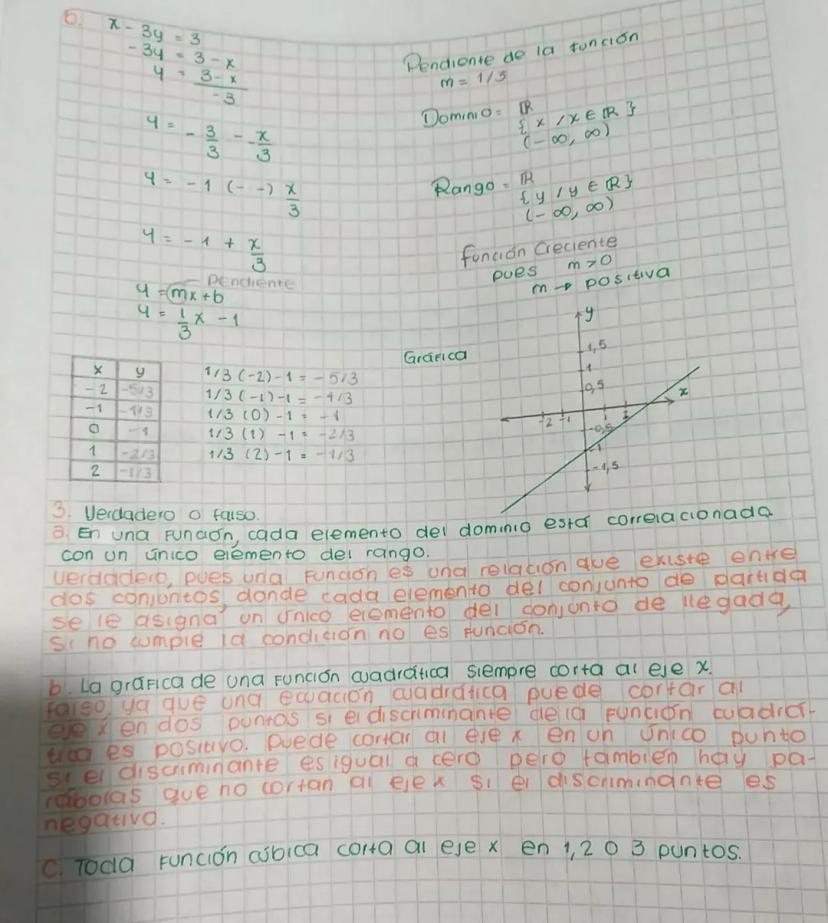 6. x - 3y = 3
-3y = 3 - x
y = 3 - x / -3
y = - 3/3 - -x/3
y = -1 (- -) x/3
y = -1 + x/3
Pendiente
y = mx + b
y = 1/3 x - 1
Pendiente de la función
m = 1/3
Dominio = ℝ
{x / x ∈ ℝ}
(-∞, ∞)
Rango = ℝ
{y / y ∈ ℝ}
(-∞, ∞)
función Creciente
pues m>0
m → positiva
x y
-2 -5/3
-1 -4/3
0 -1
1 -2/3
2 -1/3
1/3 (-2) -1 = -5/3
1/3 (-1) -1 = -4/3
1/3 (0) -1 = -1
1/3 (1) -1 = -2/3
1/3 (2) -1 = -1/3
Gráfica
y
1,5
1
0,5
x
-2 -1 1 2
-0,5
-1
-1,5
3. Verdadero o falso.
a. En una función, cada elemento del dominio está correlacionada
con un único elemento del rango.
Verdadero, pues una función es una relación que existe entre
dos conjuntos, donde cada elemento del conjunto de partida
se le asigna un único elemento del conjunto de llegada,
si no cumple la condición no es función.
b. La gráfica de una función cuadrática siempre corta al eje x.
Falso, ya que una ecuación cuadrática puede cortar al
eje x en dos puntos si el discriminante de la función cuadrá-
tica es positivo. Puede cortar al eje x en un único punto
si el discriminante es igual a cero pero también hay pa-
rábolas que no cortan al eje x si el discriminante es
negativo.
C. Toda función cúbica corta al eje x en 1, 2 o 3 puntos.